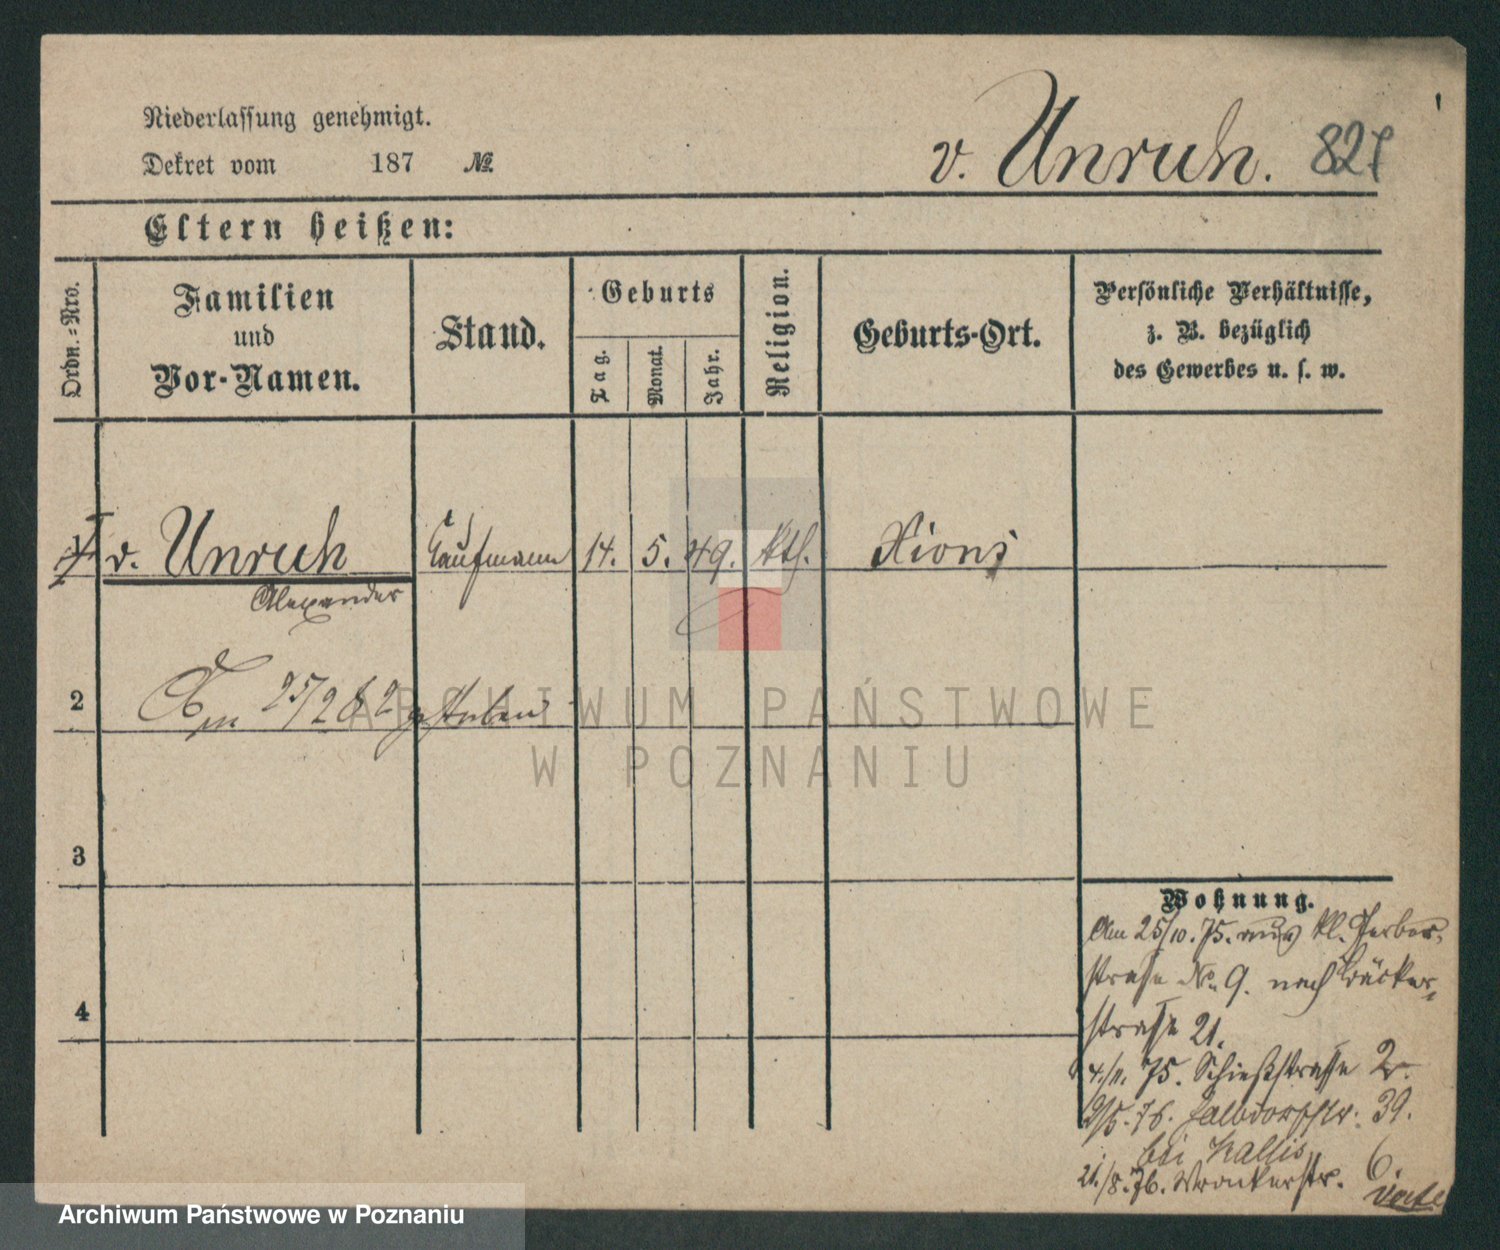 Niederlassung genehmigt.
Dekret vom 187 №
v. Unruh. 827
Eltern heißen:
Ordn.-Nro.
Familien
und
Vor-Namen.
Stand.
Geburts
Tag.
Monat.
Jahr.
Religion.
Geburts-Ort.
Persönliche Verhältnisse,
z. B. bezüglich
des Gewerbes u. s. w.
v. Unruh Kaufmann 14. 5. 49. kth. Xions
Alexander
2 Am 25/2 82 gestorben
ARCHIWUM PAŃSTWOWE
W POZNANIU
3
4
Wohnung.
Am 25/10. 75. aus kl. Gerber-
straße No. 9. nach Bäcker-
straße 21.
4./11. 75. Schießstraße 2.
75. 76. Halbdorfstr. 39.
bei Hallis
21./8. 76. Wronkerstr. 6.
verte
Archiwum Państwowe w Poznaniu